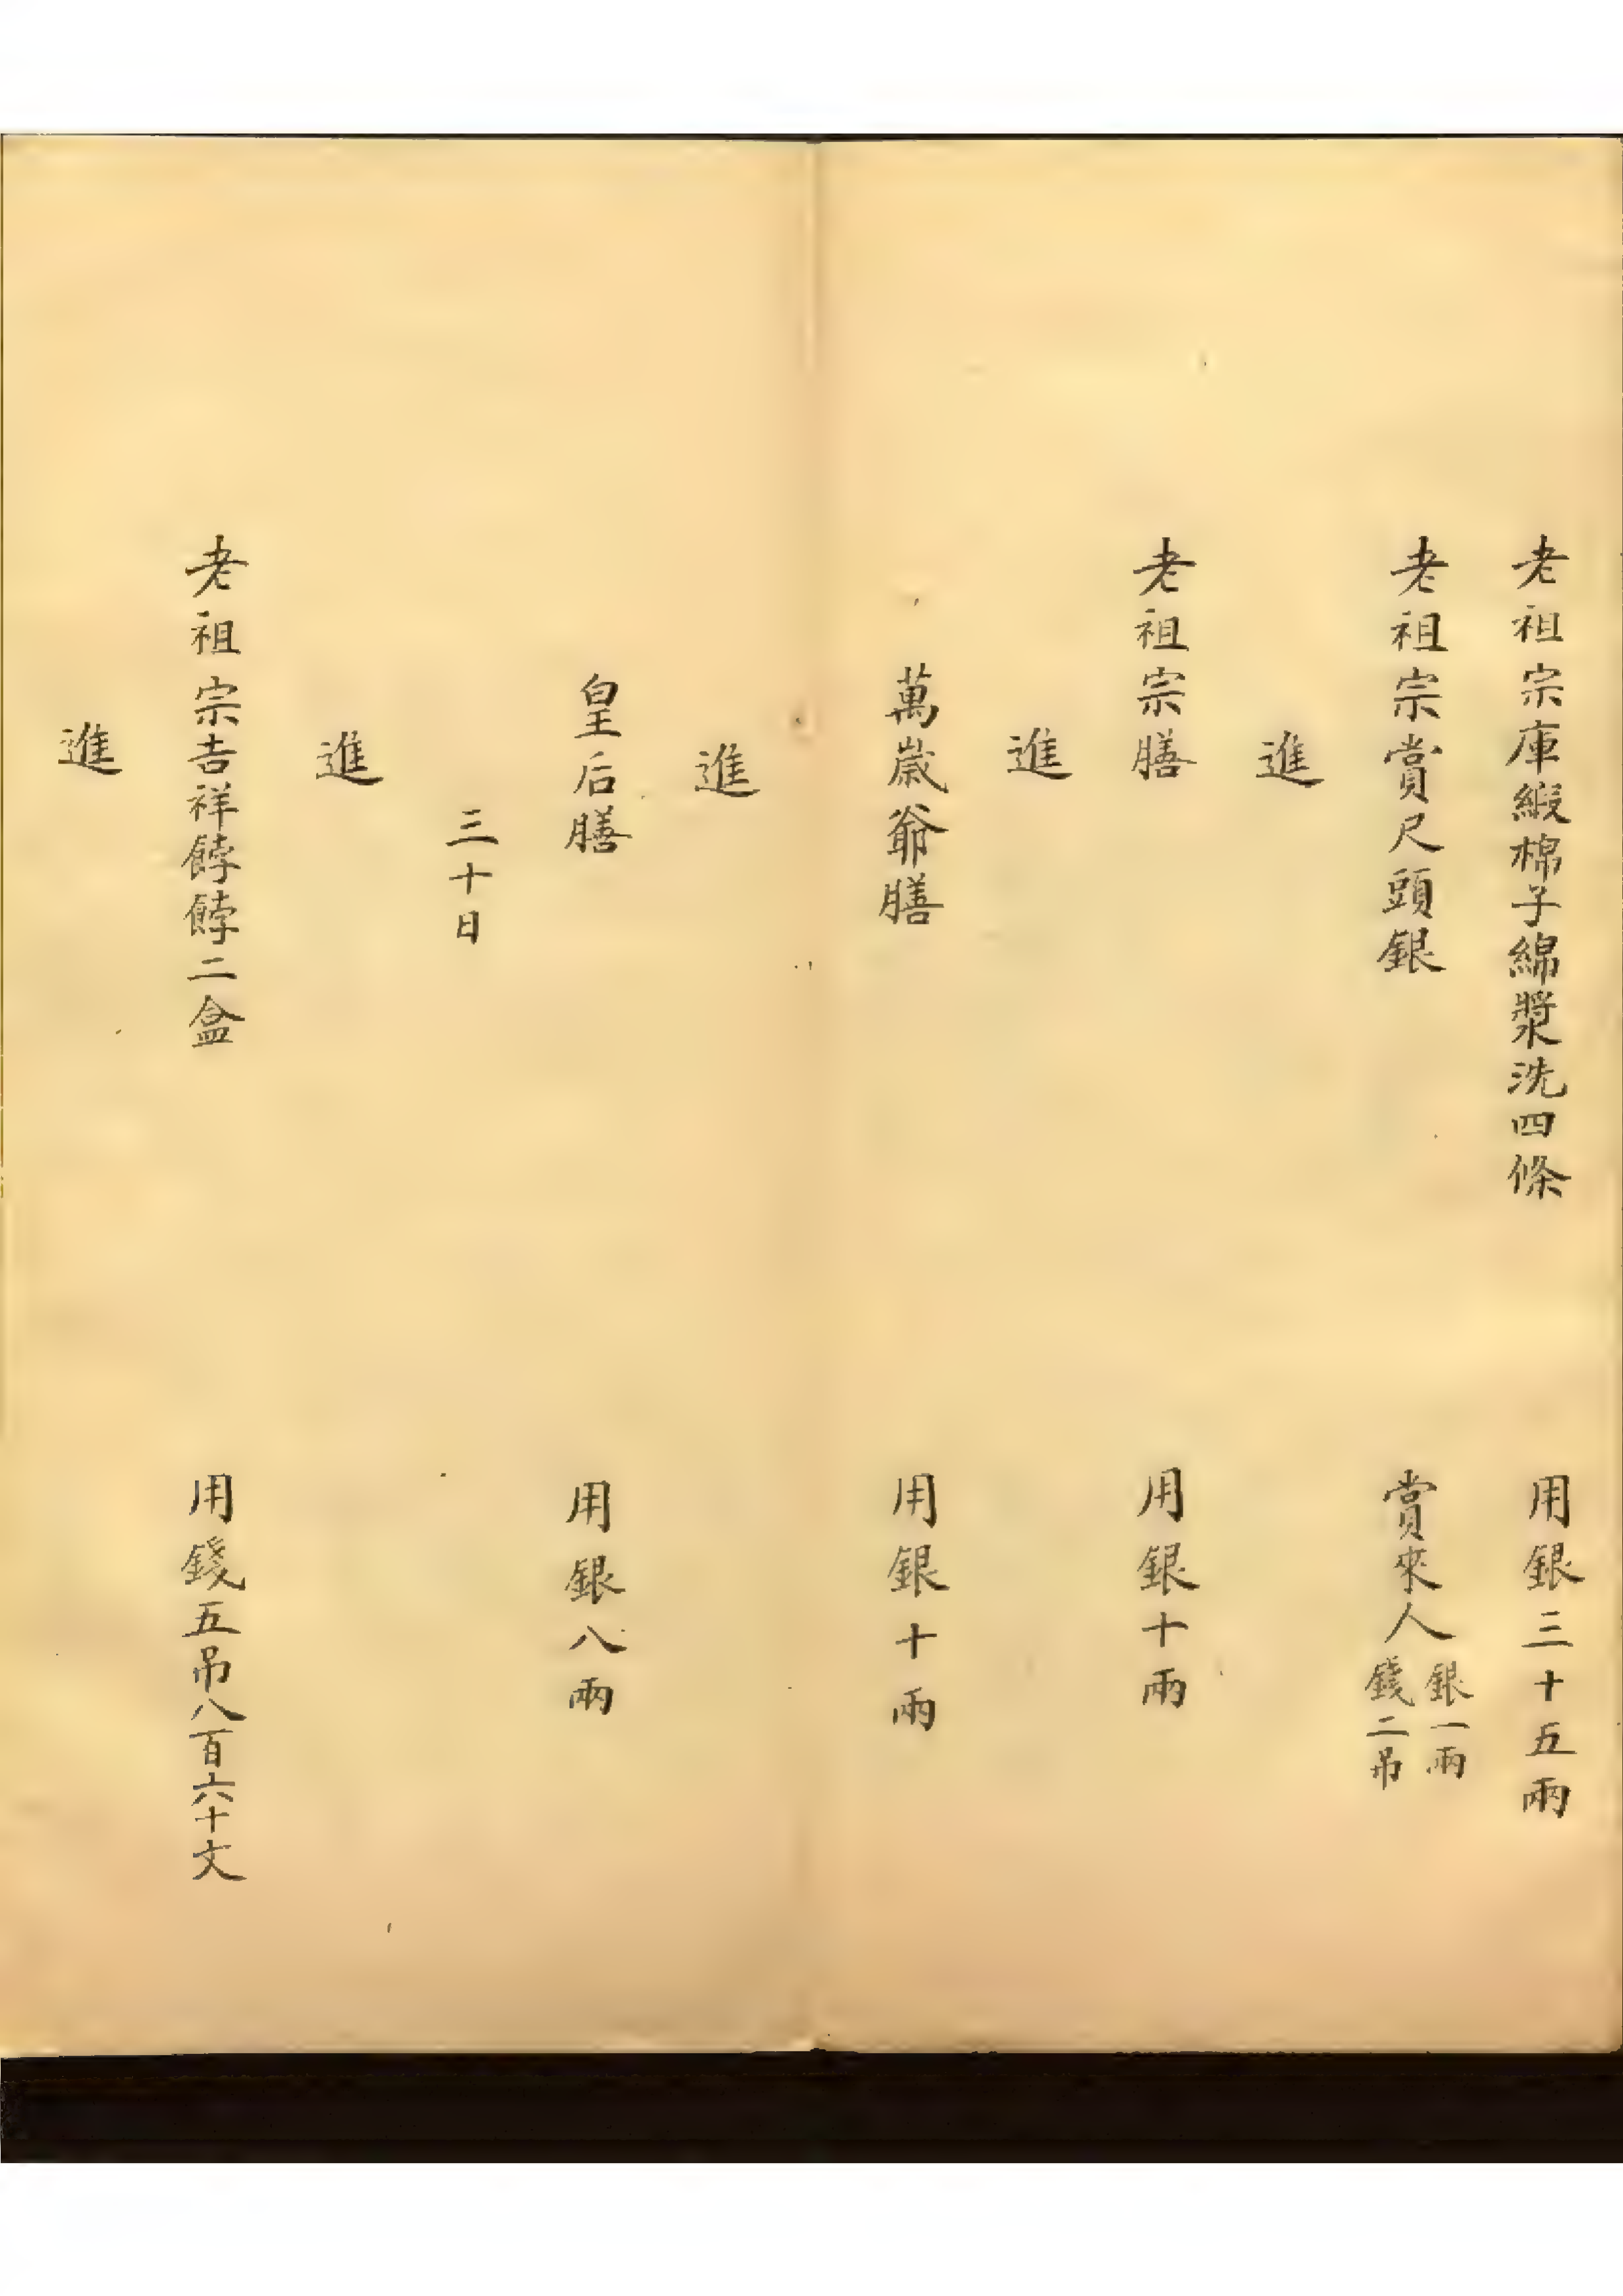 老祖宗庫緞棉子綿漿洗四條　用銀三十五兩
老祖宗賞尺頭銀　賞來人銀一兩錢二吊
進
老祖宗膳　用銀十兩
進
萬歲爺膳　用銀十兩
進
皇后膳　用銀八兩
三十日
進
老祖宗吉祥餑餑二盒　用錢五吊八百六十文
進